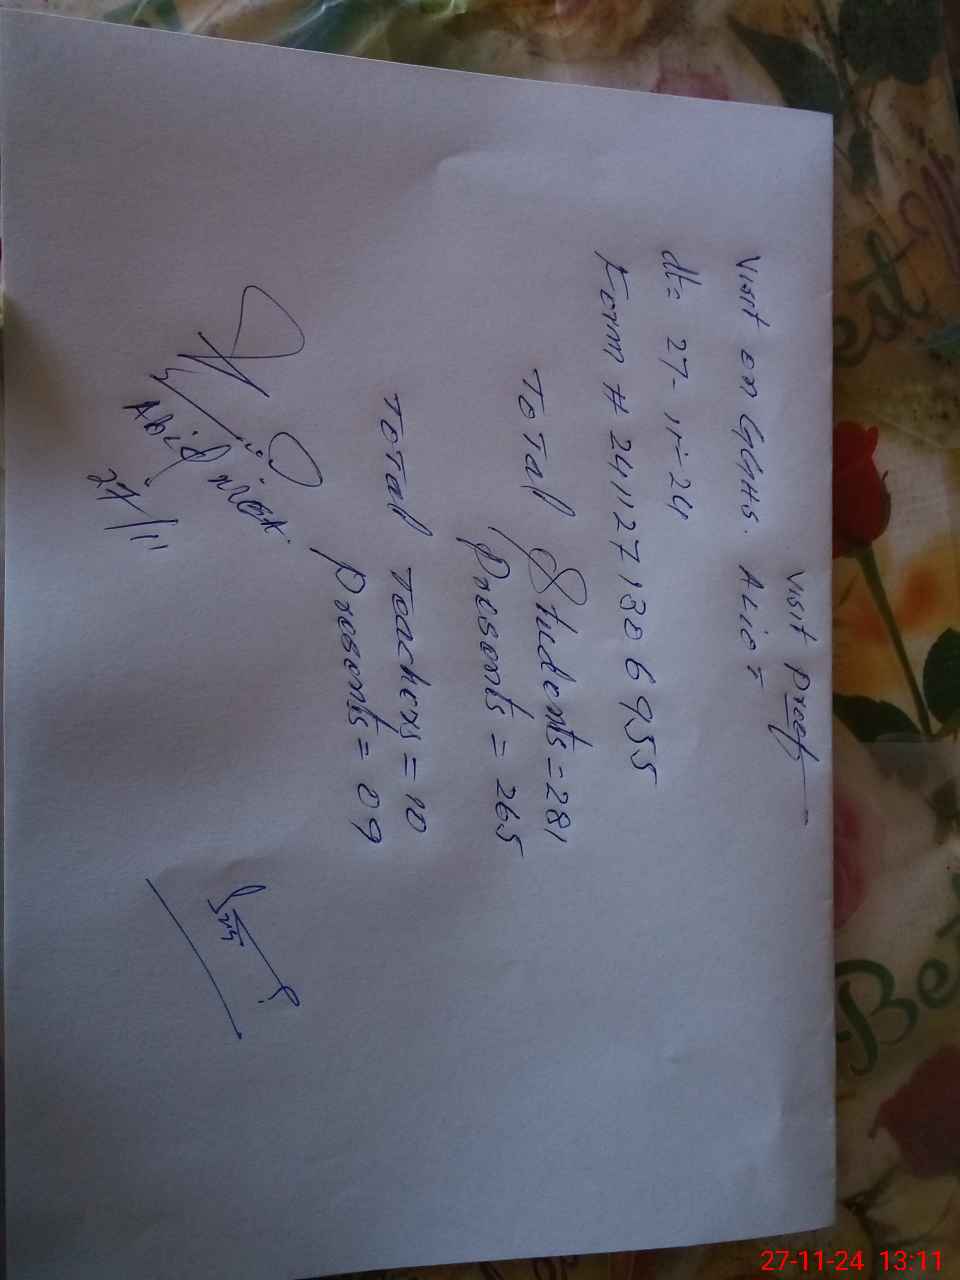 Visit Proof
Visit on GGHS.
dt= 27-11-24
Form # 2411271306955
Total Students = 281
Presents = 265
Total Teachers = 10
Presents = 09
Abid
27/11
Best
Be
27-11-24 13:11